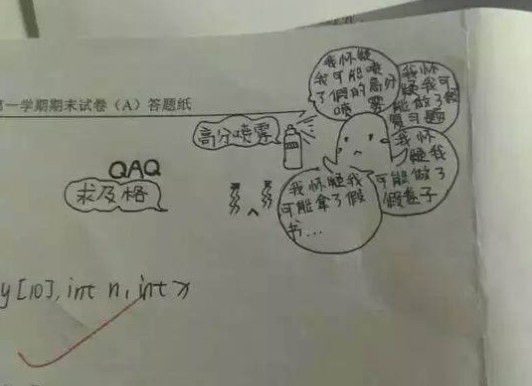 第一学期期末试卷（A）答题纸
我怀疑
我可能喷
了假的高分
喷雾
我怀
疑我可
能做了假
复习题
高分喷雾
我怀
疑我
可能做了
假卷子
QAQ
求及格
我怀疑我
可能拿了假
书...
y[10], int n, int x